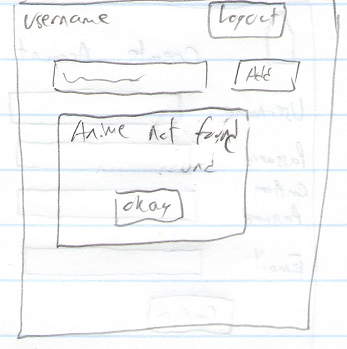 Username Logout
Add
Anime not found
okay